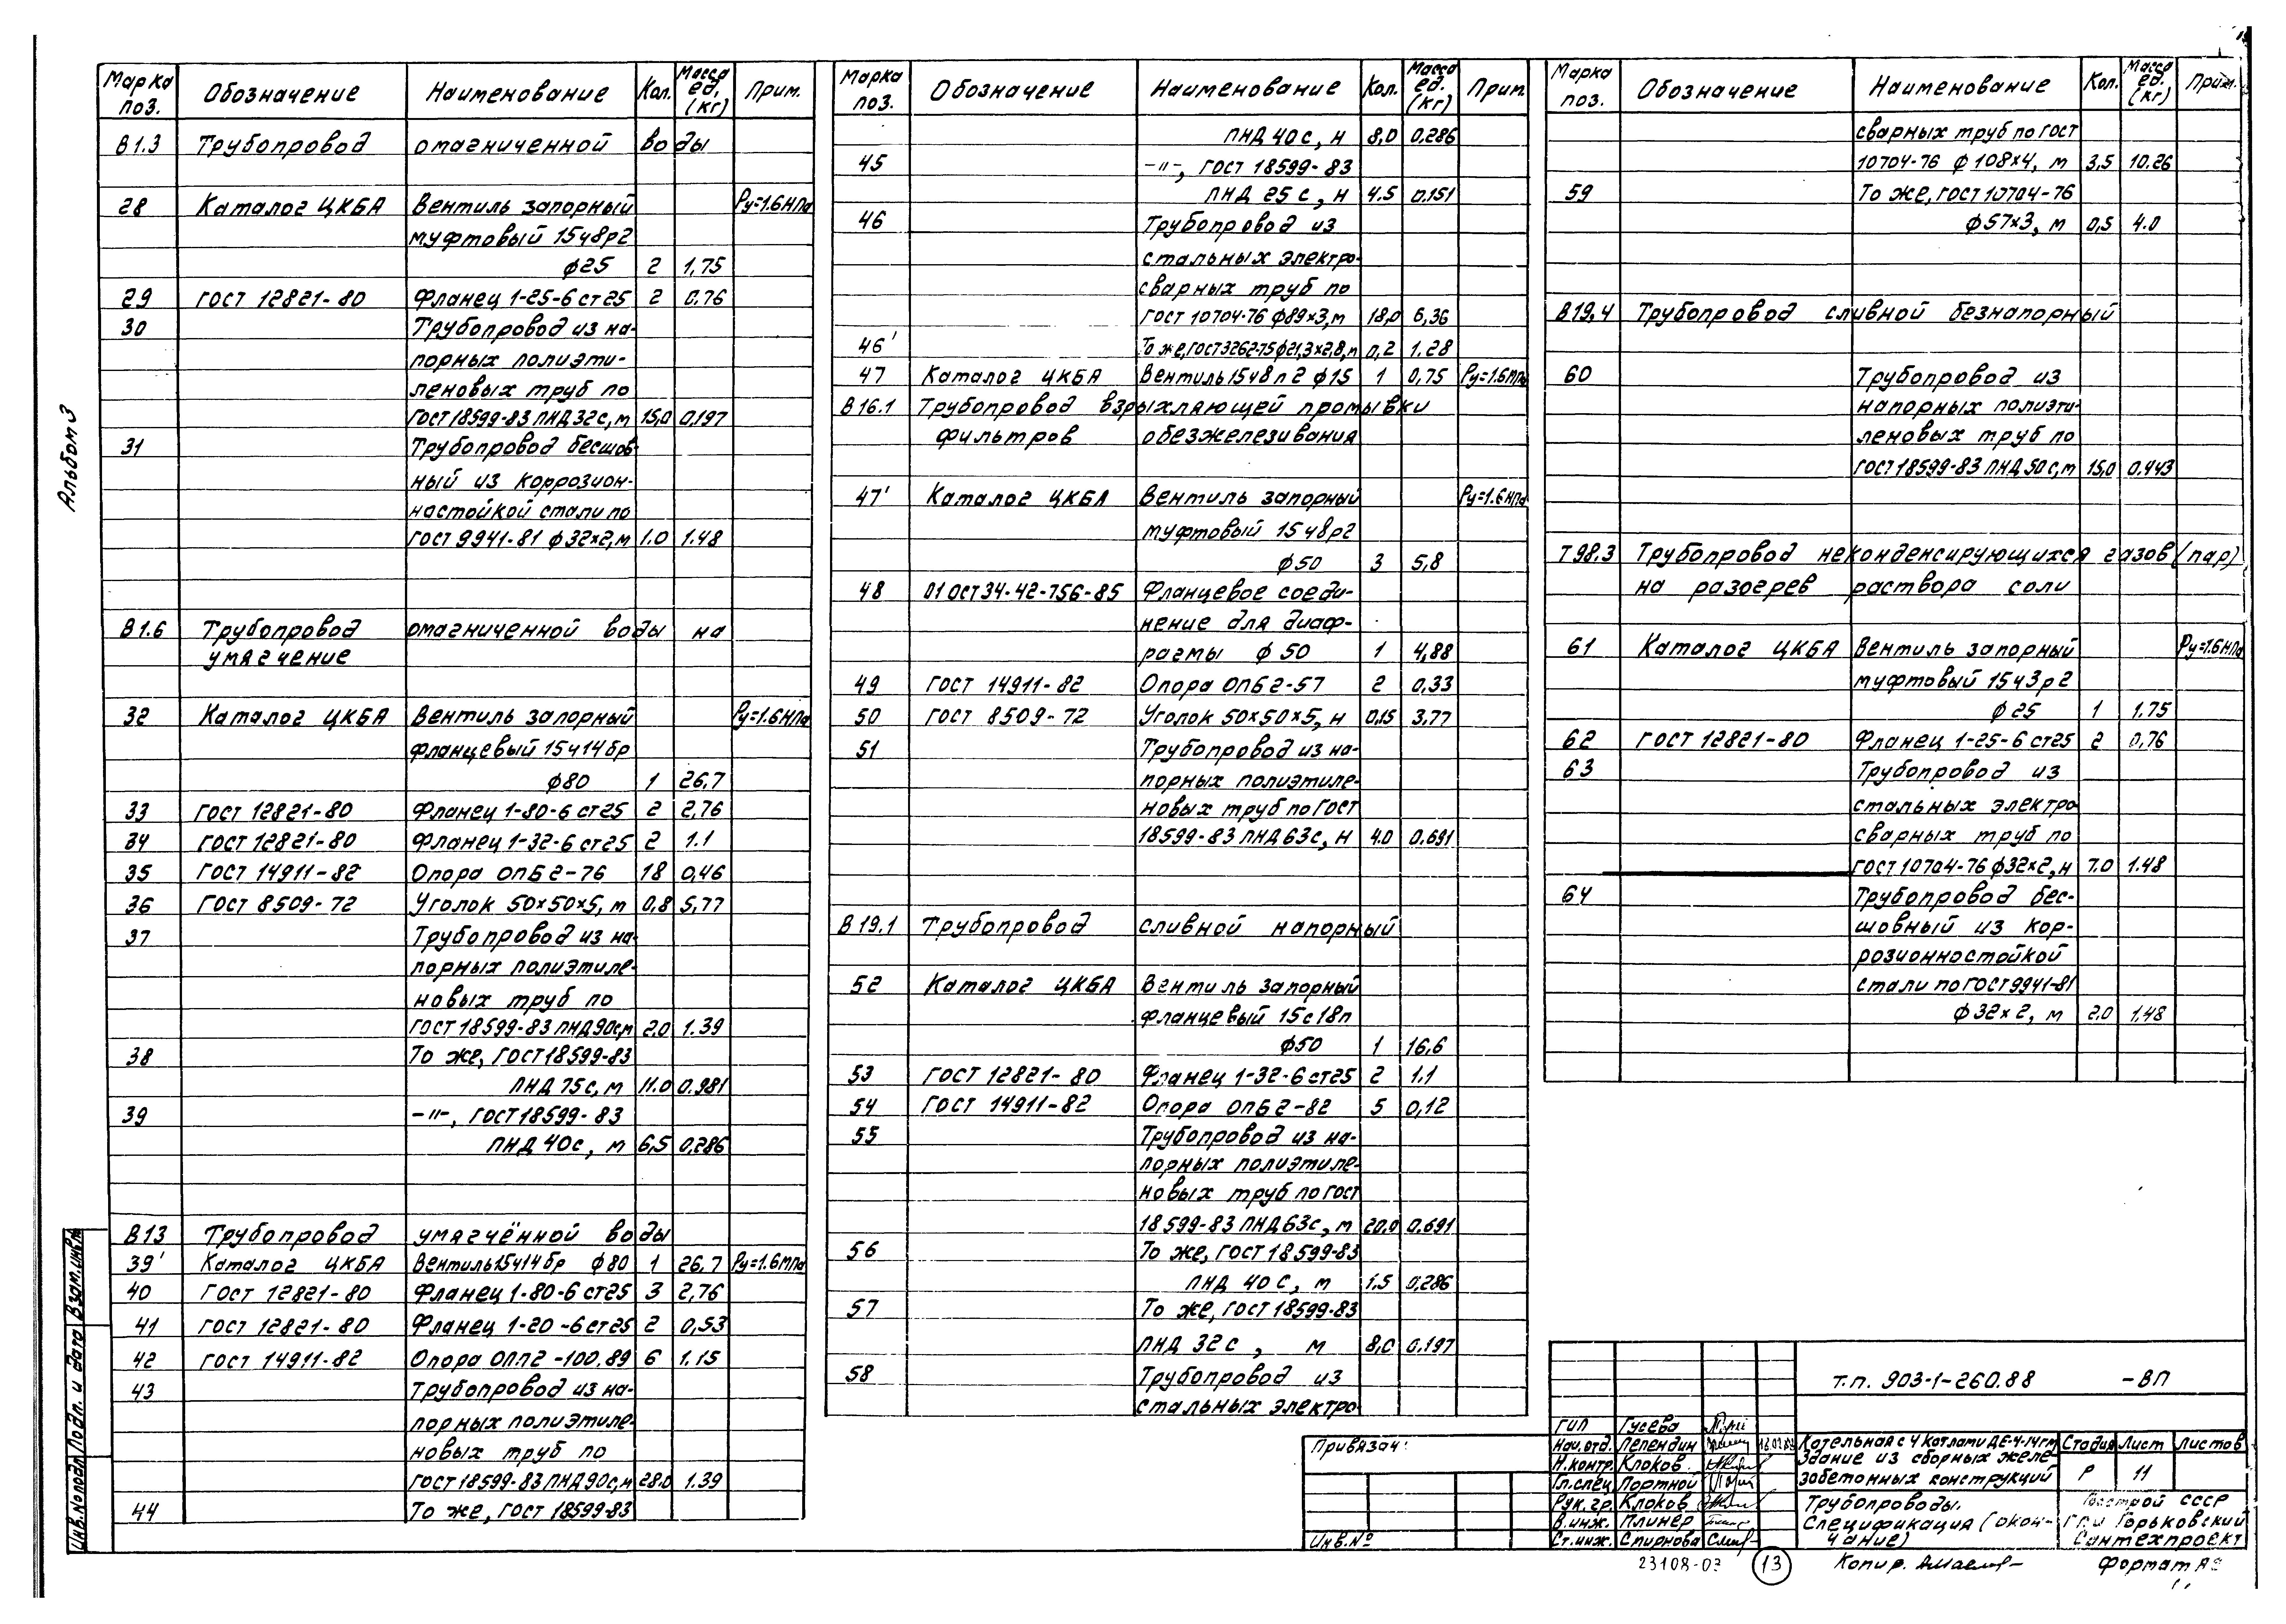 Альбом 3
Марка поз. Обозначение Наименование Кол. Масса ед. (кг) Прим.
В1.3 Трубопровод омагниченной воды
28 Каталог ЦКБА Вентиль запорный Ру=1.6МПа
муфтовый 15ч8р2
ф25 2 1,75
29 ГОСТ 12821-80 Фланец 1-25-6 ст25 2 0,76
30 Трубопровод из на-
порных полиэти-
леновых труб по
ГОСТ 18599-83 ПНД 32с, м 15,0 0,197
31 Трубопровод бесшов-
ный из коррозион-
настойкой стали по
ГОСТ 9941-81 ф32×2, м 1.0 1.48
В1.6 Трубопровод омагниченной воды на
умягчение
32 Каталог ЦКБА Вентиль запорный Ру=1.6МПа
фланцевый 15ч14бр
ф80 1 26,7
33 ГОСТ 12821-80 Фланец 1-80-6 ст25 2 2,76
34 ГОСТ 12821-80 Фланец 1-32-6 ст25 2 1.1
35 ГОСТ 14911-82 Опора ОПБ2-76 18 0,46
36 ГОСТ 8509-72 Уголок 50×50×5, м 0,8 5,77
37 Трубопровод из на-
порных полиэтиле-
новых труб по
ГОСТ 18599-83 ПНД 90с, м 2.0 1.39
38 То же, ГОСТ 18599-83
ПНД 75с, м 11.0 0.981
39 -"-, ГОСТ 18599-83
ПНД 40с, м 6,5 0,286
В13 Трубопровод умягчённой воды
39' Каталог ЦКБА Вентиль 15ч14бр ф80 1 26,7 Ру=1.6МПа
40 ГОСТ 12821-80 Фланец 1-80-6 ст25 3 2,76
41 ГОСТ 12821-80 Фланец 1-20-6 ст25 2 0,53
42 ГОСТ 14911-82 Опора ОПП2-100.89 6 1.15
43 Трубопровод из на-
порных полиэтиле-
новых труб по
ГОСТ 18599-83 ПНД 90с, м 28.0 1.39
44 То же, ГОСТ 18599-83
Марка поз. Обозначение Наименование Кол. Масса ед. (кг) Прим.
ПНД 40с, н 8,0 0.286
45 -"-, ГОСТ 18599-83
ПНД 25с, н 4.5 0.151
46 Трубопровод из
стальных электро-
сварных труб по
ГОСТ 10704-76 ф89×3, м 18,0 6,36
46' То же, ГОСТ 3262-75 ф21,3×2,8, м 0,2 1.28
47 Каталог ЦКБА Вентиль 15ч8п2 ф15 1 0,75 Ру=1.6МПа
В16.1 Трубопровод взрыхляющей промывки
фильтров обезжелезивания
47' Каталог ЦКБА Вентиль запорный Ру=1.6МПа
муфтовый 15ч8р2
ф50 3 5,8
48 01 ОСТ 34-42-756-85 Фланцевое соеди-
нение для диаф-
рагмы ф50 1 4,88
49 ГОСТ 14911-82 Опора ОПБ2-57 2 0,33
50 ГОСТ 8509-72 Уголок 50×50×5, н 0,15 3.77
51 Трубопровод из на-
порных полиэтиле-
новых труб по ГОСТ
18599-83 ПНД 63с, н 4.0 0.691
В19.1 Трубопровод сливной напорный
52 Каталог ЦКБА Вентиль запорный
фланцевый 15с18п
ф50 1 16,6
53 ГОСТ 12821-80 Фланец 1-32-6 ст25 2 1.1
54 ГОСТ 14911-82 Опора ОПБ2-82 5 0,12
55 Трубопровод из на-
порных полиэтиле-
новых труб по ГОСТ
18599-83 ПНД 63с, м 20.0 0,691
56 То же, ГОСТ 18599-83
ПНД 40с, м 1.5 0,286
57 То же, ГОСТ 18599-83
ПНД 32с, м 8,0 0.197
58 Трубопровод из
стальных электро-
Марка поз. Обозначение Наименование Кол. Масса ед. (кг) Прим.
сварных труб по ГОСТ
10704-76 ф108×4, м 3,5 10.26
59 То же, ГОСТ 10704-76
ф57×3, м 0,5 4.0
В19,4 Трубопровод сливной безнапорный
60 Трубопровод из
напорных полиэти-
леновых труб по
ГОСТ 18599-83 ПНД 50с, м 15,0 0.443
Т98.3 Трубопровод неконденсирующихся газов (пар)
на разогрев раствора соли
61 Каталог ЦКБА Вентиль запорный Ру=1.6МПа
муфтовый 15ч3р2
ф25 1 1.75
62 ГОСТ 12821-80 Фланец 1-25-6 ст25 2 0,76
63 Трубопровод из
стальных электро-
сварных труб по
ГОСТ 10704-76 ф32×2, н 7.0 1.48
64 Трубопровод бес-
шовный из кор-
розионностойкой
стали по ГОСТ 9941-81
ф32×2, м 2.0 1.48
Т.П. 903-1-260.88 -ВП
Привязан:
Инв.№
ГИП Гусева
Нач.отд. Лепендин
Н.контр. Клоков
Гл.спец. Портной
Рук.гр. Клоков
В.инж. Плинер
Ст.инж. Спирнова
Котельная с 4 котлами ДЕ-4-14гм
Здание из сборных желе-
зобетонных конструкций
Стадия Лист Листов
Р 11
Трубопроводы.
Спецификация (окон-
чание)
Госстрой СССР
ГПИ Горьковский
Сантехпроект
Инв.№подл. Подп. и дата Взам.инв.№
23108-03 13 Копир. Формат А2